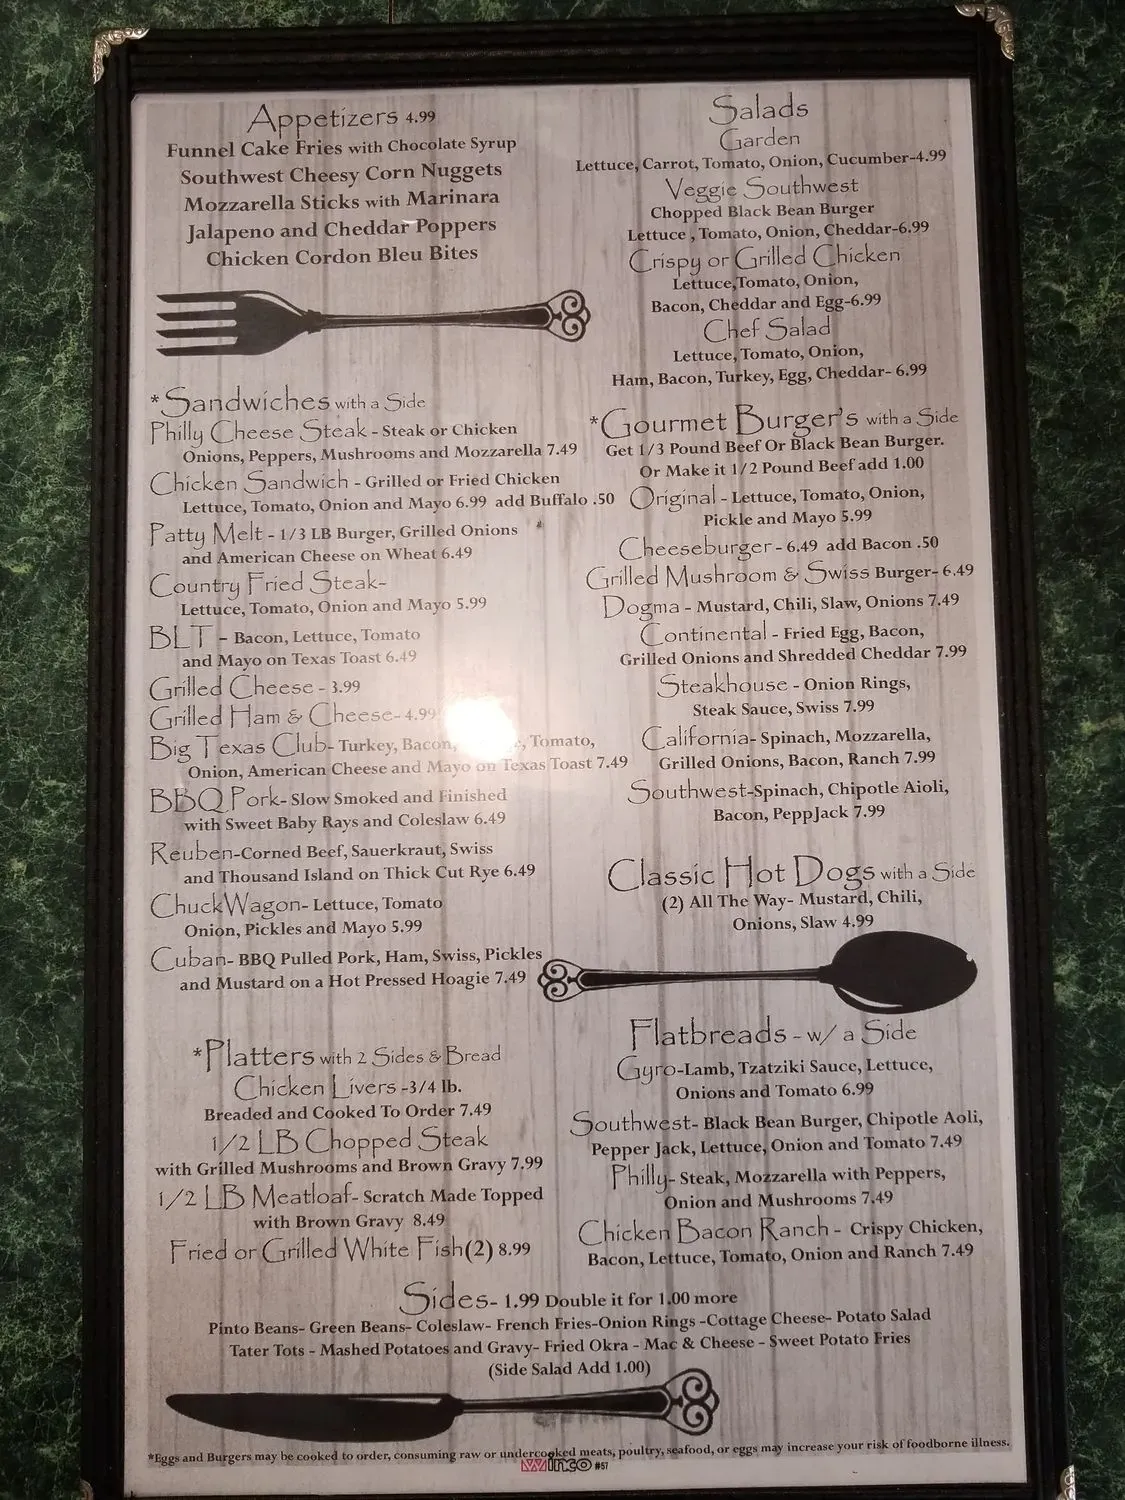 Appetizers 4.99
Funnel Cake Fries with Chocolate Syrup
Southwest Cheesy Corn Nuggets
Mozzarella Sticks with Marinara
Jalapeno and Cheddar Poppers
Chicken Cordon Bleu Bites
*Sandwiches with a Side
Philly Cheese Steak - Steak or Chicken
Onions, Peppers, Mushrooms and Mozzarella 7.49
Chicken Sandwich - Grilled or Fried Chicken
Lettuce, Tomato, Onion and Mayo 6.99 add Buffalo .50
Patty Melt - 1/3 LB Burger, Grilled Onions *
and American Cheese on Wheat 6.49
Country Fried Steak-
Lettuce, Tomato, Onion and Mayo 5.99
BLT - Bacon, Lettuce, Tomato
and Mayo on Texas Toast 6.49
Grilled Cheese - 3.99
Grilled Ham & Cheese- 4.99
Big Texas Club- Turkey, Bacon, Tomato,
Onion, American Cheese and Mayo on Texas Toast 7.49
BBQ Pork- Slow Smoked and Finished
with Sweet Baby Rays and Coleslaw 6.49
Reuben-Corned Beef, Sauerkraut, Swiss
and Thousand Island on Thick Cut Rye 6.49
ChuckWagon- Lettuce, Tomato
Onion, Pickles and Mayo 5.99
Cuban- BBQ Pulled Pork, Ham, Swiss, Pickles
and Mustard on a Hot Pressed Hoagie 7.49
*Platters with 2 Sides & Bread
Chicken Livers -3/4 lb.
Breaded and Cooked To Order 7.49
1/2 LB Chopped Steak
with Grilled Mushrooms and Brown Gravy 7.99
1/2 LB Meatloaf- Scratch Made Topped
with Brown Gravy 8.49
Fried or Grilled White Fish(2) 8.99
Salads
Garden
Lettuce, Carrot, Tomato, Onion, Cucumber-4.99
Veggie Southwest
Chopped Black Bean Burger
Lettuce , Tomato, Onion, Cheddar-6.99
Crispy or Grilled Chicken
Lettuce,Tomato, Onion,
Bacon, Cheddar and Egg-6.99
Chef Salad
Lettuce, Tomato, Onion,
Ham, Bacon, Turkey, Egg, Cheddar- 6.99
*Gourmet Burger's with a Side
Get 1/3 Pound Beef Or Black Bean Burger.
Or Make it 1/2 Pound Beef add 1.00
Original - Lettuce, Tomato, Onion,
Pickle and Mayo 5.99
Cheeseburger - 6.49 add Bacon .50
Grilled Mushroom & Swiss Burger- 6.49
Dogma - Mustard, Chili, Slaw, Onions 7.49
Continental - Fried Egg, Bacon,
Grilled Onions and Shredded Cheddar 7.99
Steakhouse - Onion Rings,
Steak Sauce, Swiss 7.99
California- Spinach, Mozzarella,
Grilled Onions, Bacon, Ranch 7.99
Southwest-Spinach, Chipotle Aioli,
Bacon, PeppJack 7.99
Classic Hot Dogs with a Side
(2) All The Way- Mustard, Chili,
Onions, Slaw 4.99
Flatbreads - w/ a Side
Gyro-Lamb, Tzatziki Sauce, Lettuce,
Onions and Tomato 6.99
Southwest- Black Bean Burger, Chipotle Aoli,
Pepper Jack, Lettuce, Onion and Tomato 7.49
Philly- Steak, Mozzarella with Peppers,
Onion and Mushrooms 7.49
Chicken Bacon Ranch - Crispy Chicken,
Bacon, Lettuce, Tomato, Onion and Ranch 7.49
Sides- 1.99 Double it for 1.00 more
Pinto Beans- Green Beans- Coleslaw- French Fries-Onion Rings -Cottage Cheese- Potato Salad
Tater Tots - Mashed Potatoes and Gravy- Fried Okra - Mac & Cheese - Sweet Potato Fries
(Side Salad Add 1.00)
*Eggs and Burgers may be cooked to order, consuming raw or undercooked meats, poultry, seafood, or eggs may increase your risk of foodborne illness.
Winco #57